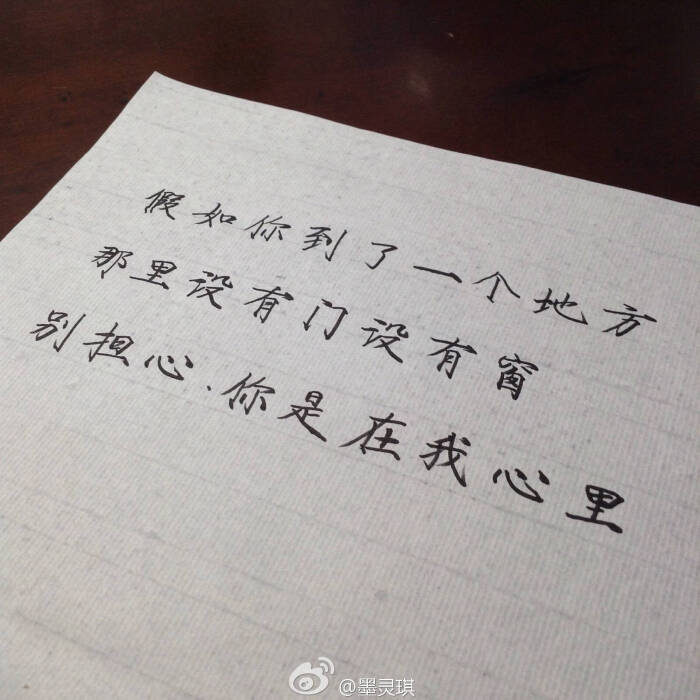 假如你到了一个地方
那里没有门没有窗
别担心.你是在我心里
@墨灵琪